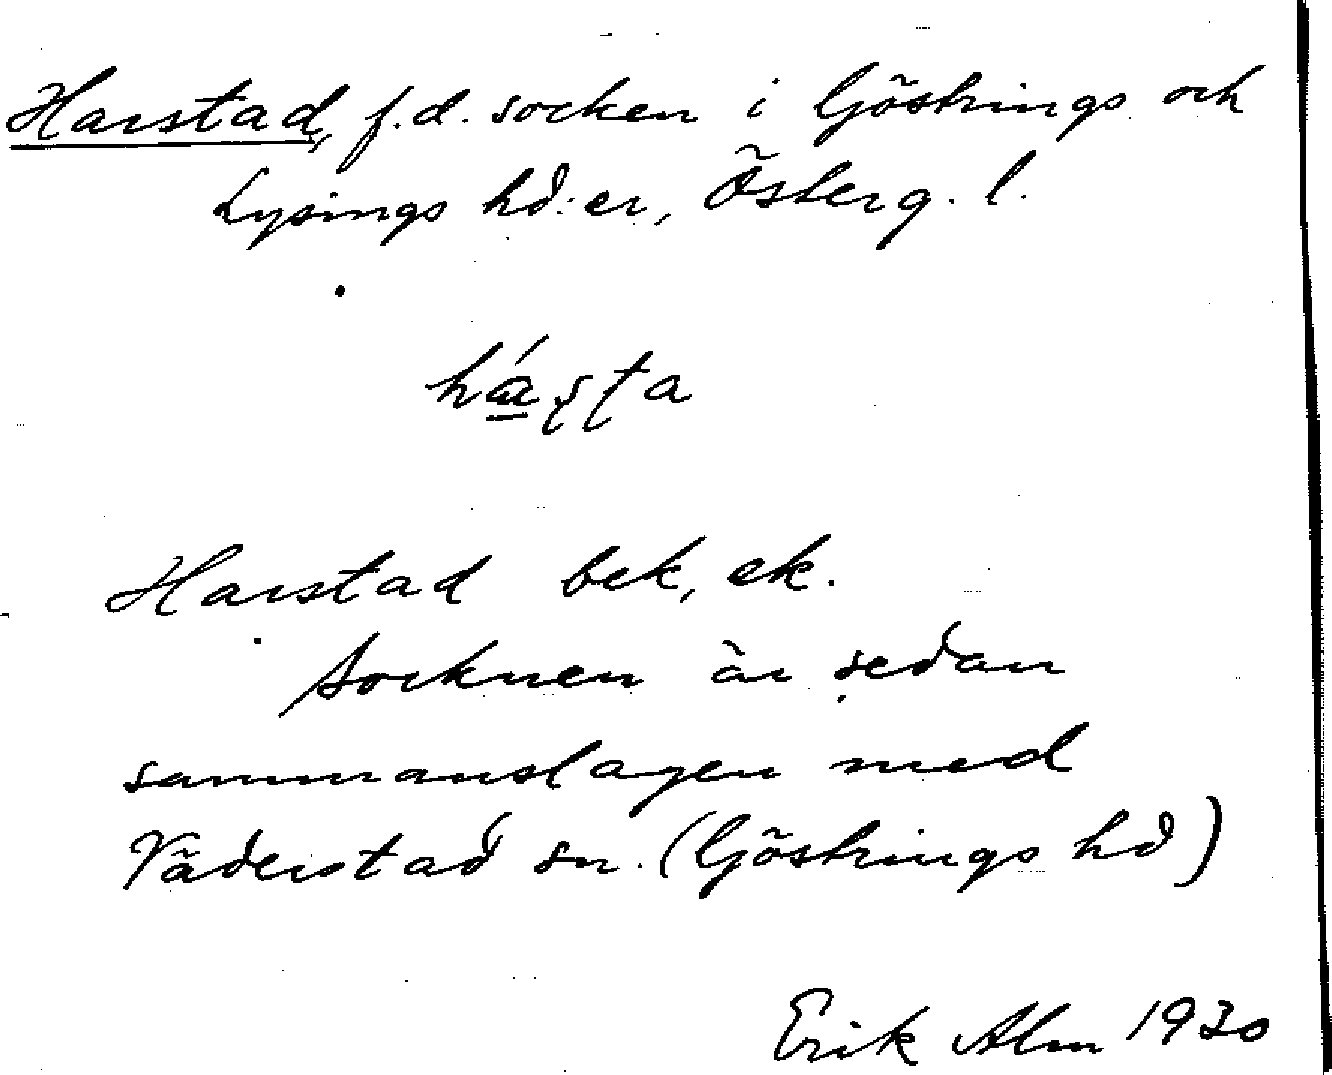 Harstad, f.d. socken i Göstrings och
Lysings hd:er, Österg. l.
há̲ʂʈa
Harstad bek, ek.
Socknen är sedan
sammanslagen med
Väderstad sn. (Göstrings hd)
Erik Alm 1930